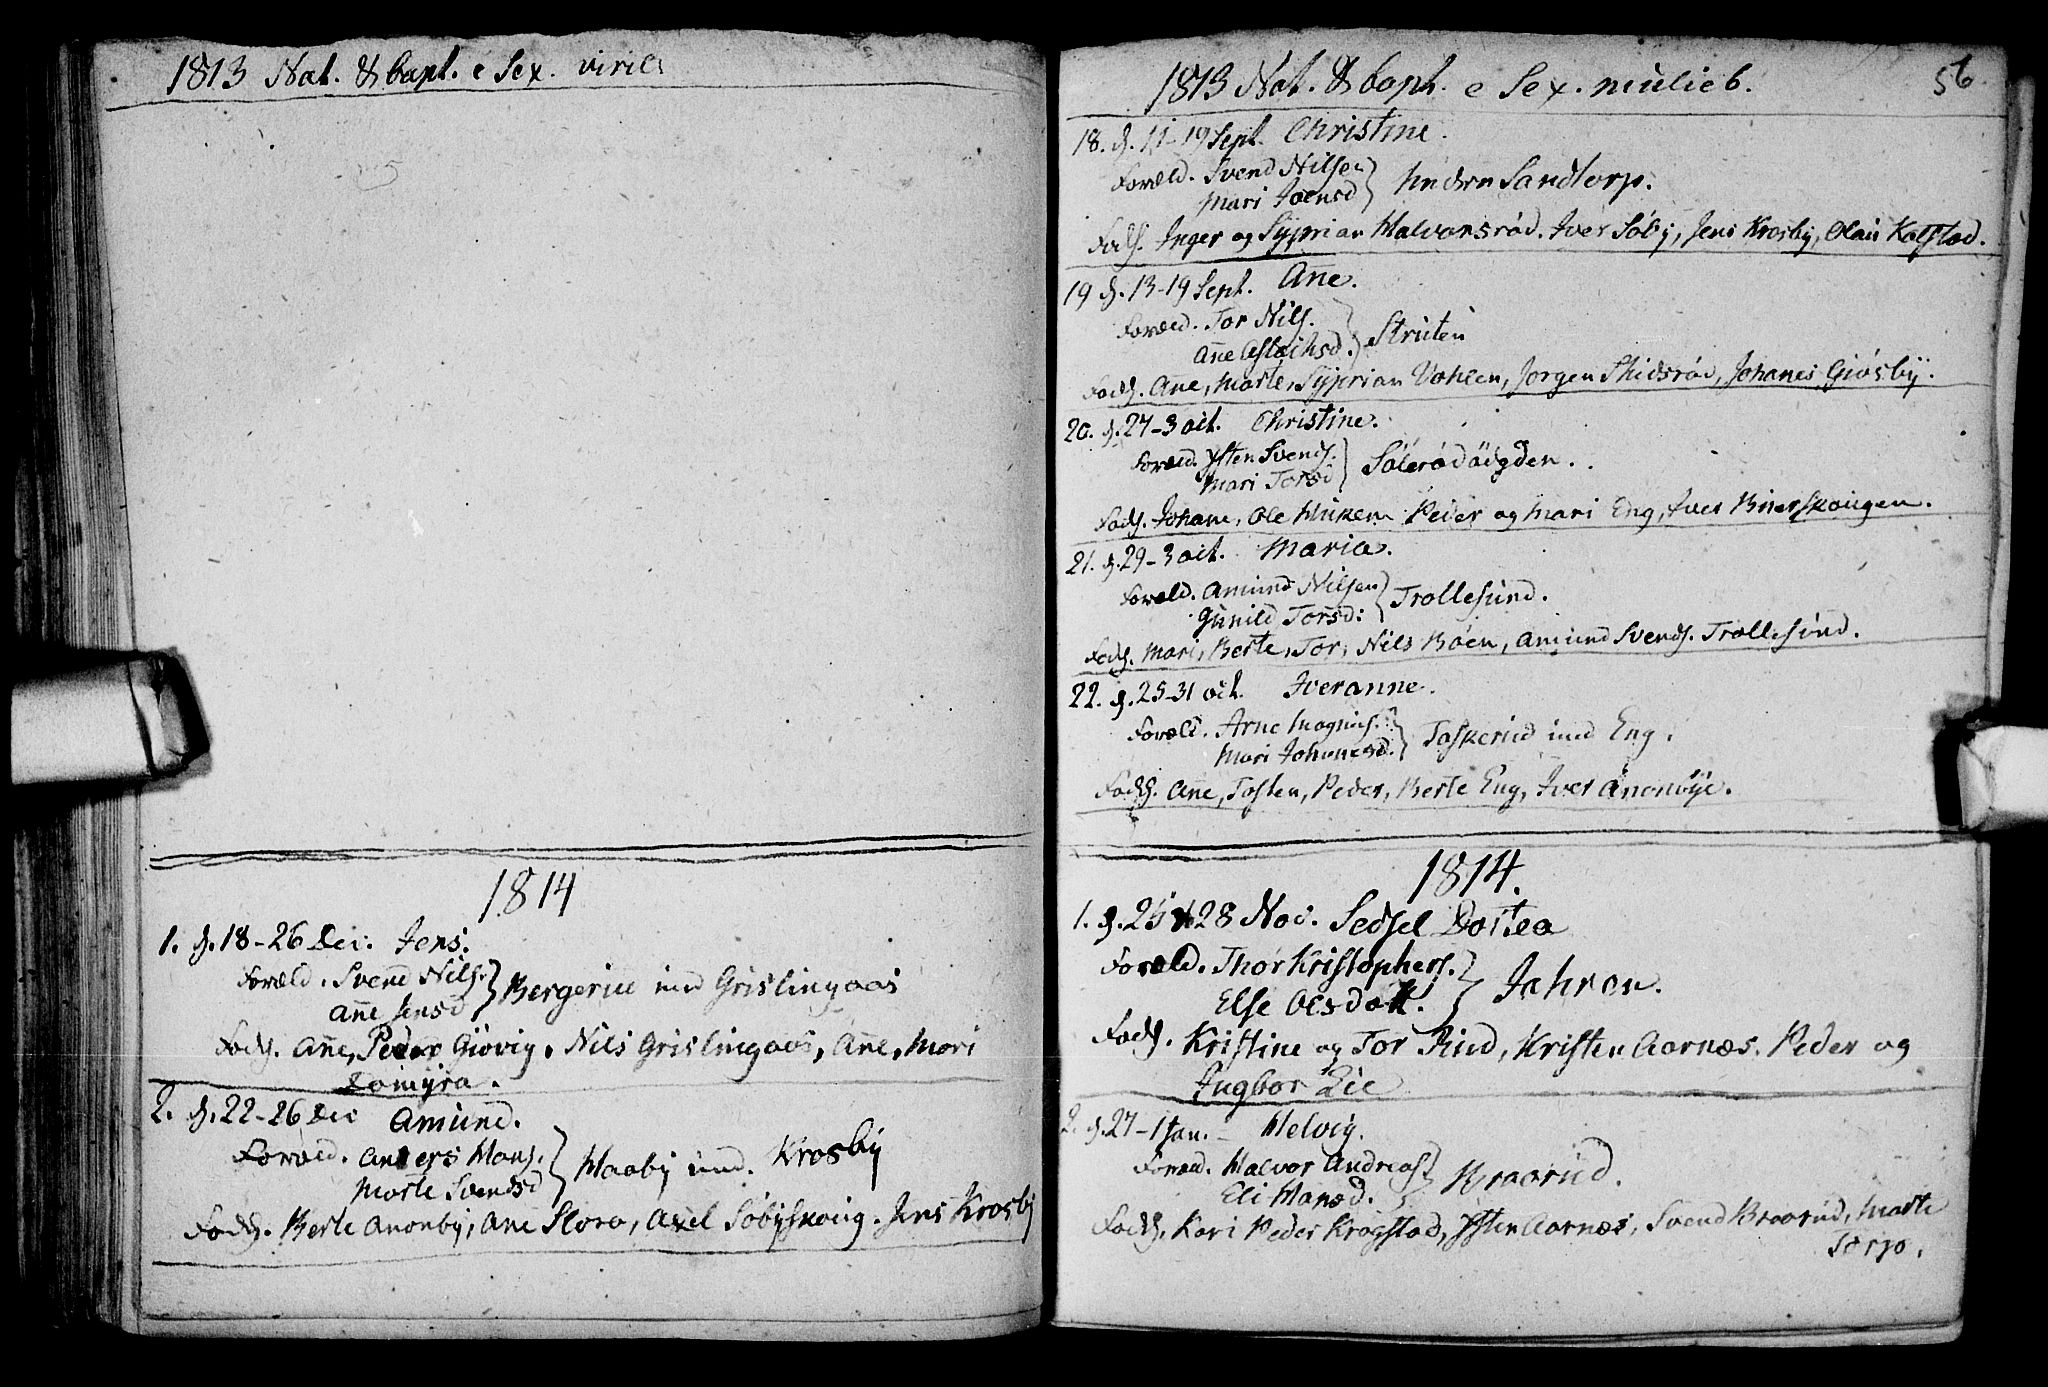 1813 Nat. & bapt. e Sex. virili
1814
1. d. 18-26 Dec. Jens.
Foræld. Svend Nils.
Añe Jensd } Bergerue und Grislingaas
Fadd. Añe, Peder Giøvig, Nils Grislingaas, Añe, Mari
Lomyra.
2. d. 22-26 Dec Amund.
Foræld. Anders Hans.
Marte Svendsd } Haaby und. Krosby
Fadd. Berte Anonby, Ane Slora, Axel Søbyskoug. Jens Krosby
1813 Nat. & bapt. e Sex. mulieb.
56
18. d. 11-19 Sept. Christine.
Foræld. Svend Nilsen
Mari Joensd } Sandtorp.
Fadd. Inger og Syprian Halvorsrød. Iver Søby, Jens Krosby, Olaus Kolstad.
19 d. 13-19 Sept. Añe.
Foræld. Tor Nils.
Añe Aslachsd. } Struten
Fadd. Añe, Marte, Syprian Vahlen, Jørgen Skidsrød, Johanes Giøsby.
20. d. 27-3 oct. Christine.
Foræld. Ysten Svends.
Mari Torsd } Sølerødødgden.
Fadd. Johane, Ole Huken Peder og Mari Eng, Iver Bierskougen.
21. d. 29-3 oct. Maria.
Foræld. Amund Nilsen
Gunild Torsd. } Trollesund.
Fadd. Mari, Berte, Tor, Nils Bøen, Amund Svends. Trollesund.
22. d. 25-31 oct. Iveranne.
Foræld. Arne Magnus.
Mari Johanesd. } Taskerud und Eng.
Fadd. Añe, Tosten, Peder, Berte Eng, Iver Anonbye.
1814.
1. d. 25 28 Nov. Sedsel Dortea
Foræld. Thor Kristophers.
Else Olsdatt. } Jahren.
Fadd. Kristine og Tor Rud, Kristen Aarnæs. Peder og
Ingbor Lie
2. d. 27-1 Jan. - Helvig.
Foræld. Halvor Andreas
Eli Hansd. } Braarud.
Fadd. Kari Peder Krogstad, Ysten Aarnæs, Svend Braarud, Marte
Torp.